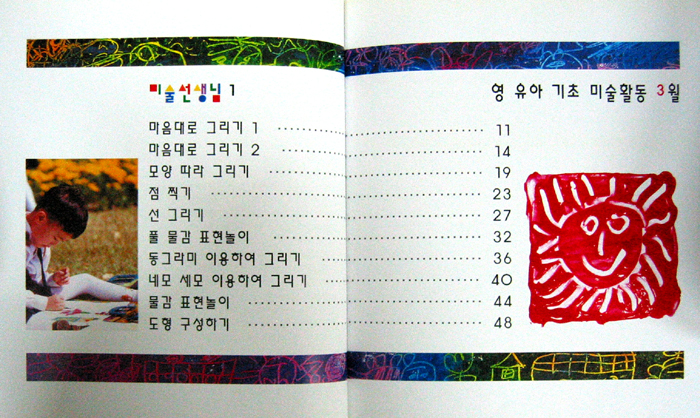 미술선생님 1
영 유아 기초 미술활동 3월
마음대로 그리기 1 11
마음대로 그리기 2 14
모양 따라 그리기 19
점 찍기 23
선 그리기 27
풀 물감 표현놀이 32
동그라미 이용하여 그리기 36
네모 세모 이용하여 그리기 40
물감 표현놀이 44
도형 구성하기 48